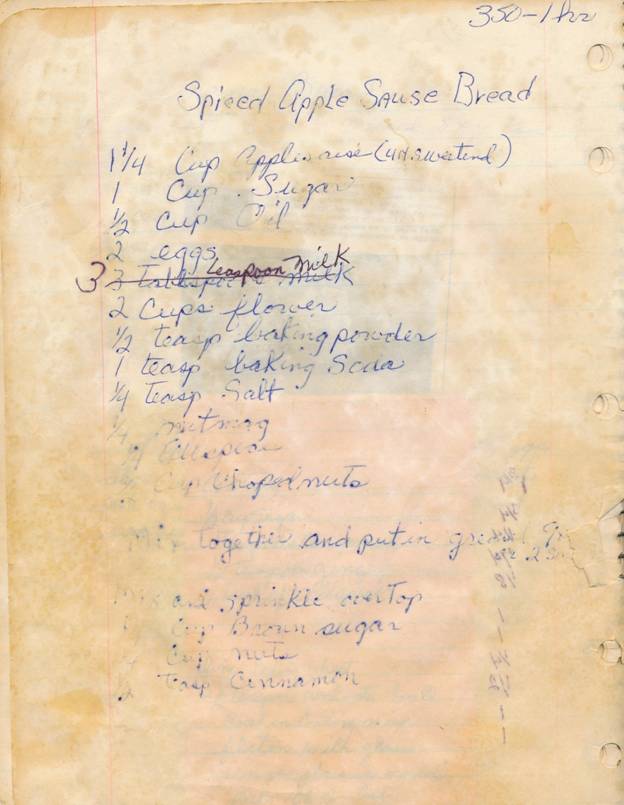 350 - 1 hr
Spiced Apple Sause Bread
1 1/4 Cup Applesause (unsweetend)
1 Cup Sugar
1/2 Cup Oil
2 eggs
3 teaspoon Milk
3 Tablespoons Milk
2 Cups flower
1/2 teasp baking powder
1 teasp baking Soda
1/4 Teasp Salt
1/4 nutmag
Allspice
Cup Choped nuts
Mix together and put in
Mix and sprinkle over Top
Cup Brown sugar
Cup nuts
1/2 Teasp Cinnamon